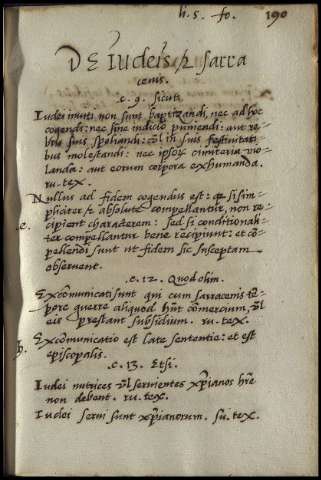 li. 5. fo. 190
DE Iudeis & sarra
cenis.
c. 9. sicuti
Iudei inuiti non sunt baptizandi, nec ad hoc
cogendi: nec sine iudicio puniendi: aut re-
bus suis spoliandi: vel in suis festiuitati-
bus molestandi: nec ipsor cimiteria vio-
landa: aut eorum corpora exhumanda.
ru. tex.
Nullus ad fidem cogendus est: & si sim-
pliciter & absolute compellantur, non re-
e. cipient characterem: sed si conditionali-
ter compellantur bene recipiunt: et cō-
pellendi sunt ut fidem sic susceptam
obseruent.
c. 12. Quod olim.
Excōmunicati sunt qui cum sarracenis tē-
pore guerre aliquod hn̄t comercium, vl̄
eis prestant subsidium. ru. tex.
h. Excōmunicatio est late sententie: et est
episcopalis.
c. 13. Etsi.
Iudei nutrices vl̄ seruientes xp̄ianos hr̄e
non debent. ru. tex.
Iudei serui sunt xp̄ianorum. su. tex.